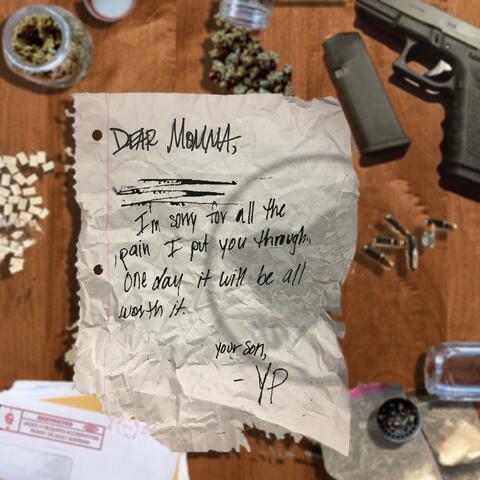 DEAR MOMMA,
I'm sorry for all the
pain I put you through.
One day it will be all
worth it.
your son,
- YP
RESTRICTED